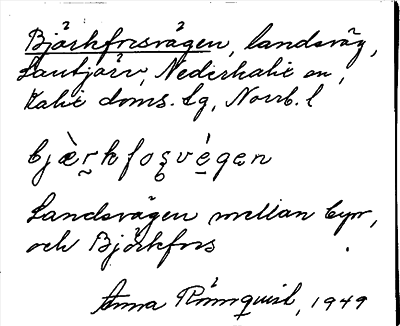 Björkforsvägen, landsväg,
Lautjärv, Nederkalix sn,
Kalix doms. lg, Norrb. l
bjæ̀rkfoṣvégen
Landsvägen mellan byn,
och Björkfors
Anna Rönnquist, 1949